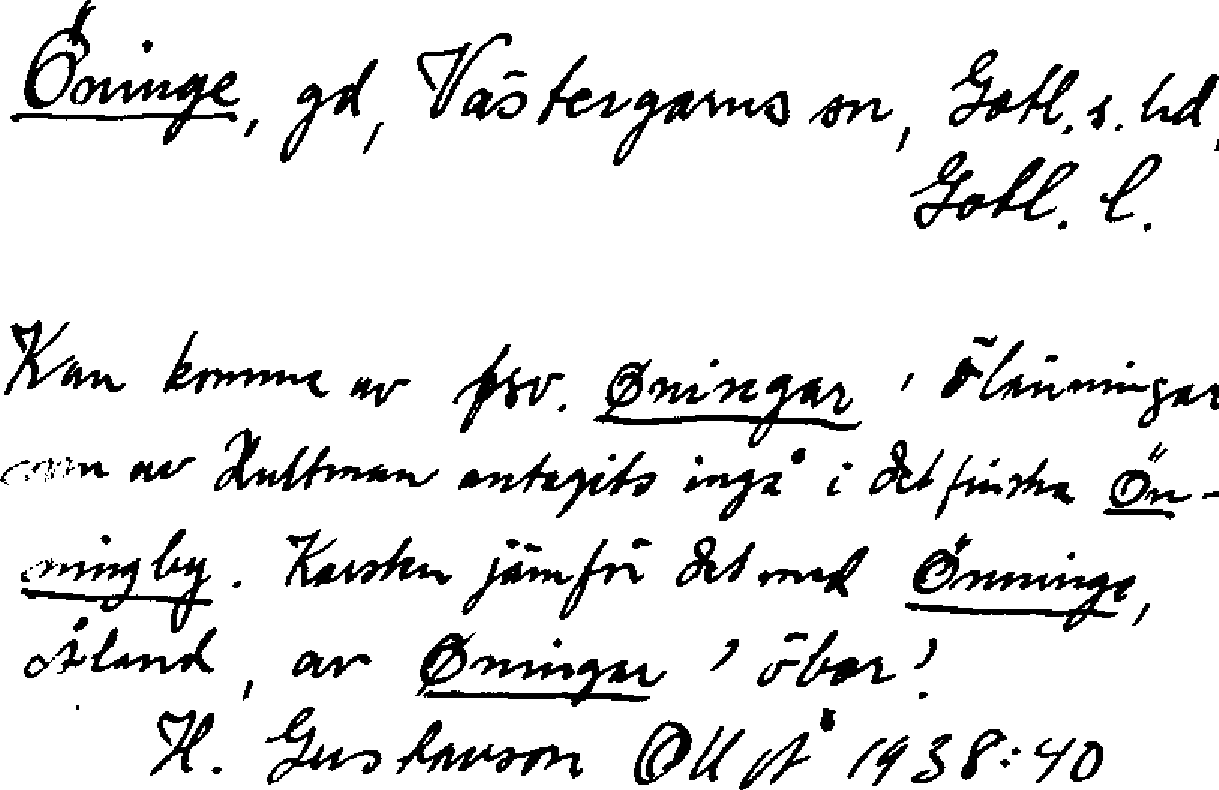 Öninge, gd, Västergarns sn, Gotl. s. hd,
Gotl. l.
Kan komma av fsv. Øningar ' ölänningar
som av Hultman antagits ingå i det finska Ön-
ningby. Karsten jämför det med Önninge,
Åland, av Øningar 'öbor'.
H. Gustavson 1938:40